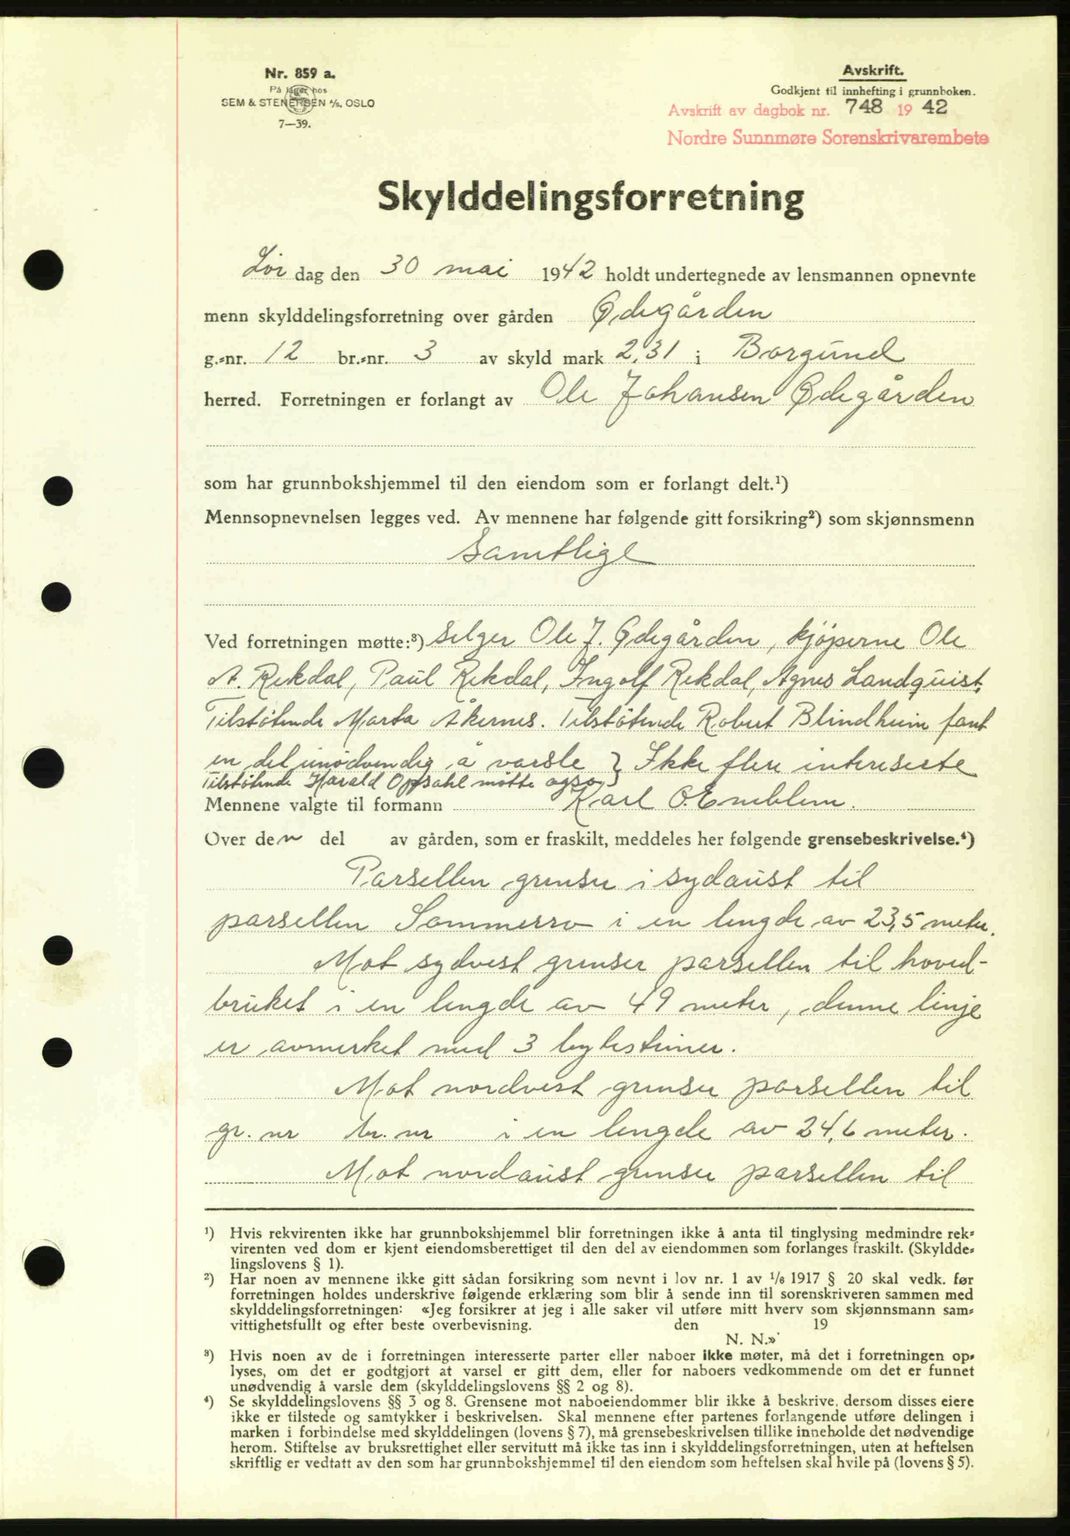 Nr. 859 a.
På lager hos
SEM & STENERSEN A/S. OSLO
7—39.
Avskrift.
Godkjent til innhefting i grunnboken.
Avskrift av dagbok nr. 748 19 42
Nordre Sunnmøre Sorenskrivarembete
Skylddelingsforretning
Lør dag den 30 mai 1942 holdt undertegnede av lensmannen opnevnte
menn skylddelingsforretning over gården Ødegården
g.=nr. 12 br.=nr. 3 av skyld mark 2,31 i Borgund
herred. Forretningen er forlangt av Ole Johansen Ødegården
som har grunnbokshjemmel til den eiendom som er forlangt delt.¹)
Mennsopnevnelsen legges ved. Av mennene har følgende gitt forsikring²) som skjønnsmenn
Samtlige
Ved forretningen møtte:³) Selger Ole J. Ødegården, kjöperne Ole
A. Rekdal, Paul Rekdal, Ingolf Rekdal, Agnes Landquist,
Tilstötende Marta Åkernes. Tilstötende Robert Blindheim fant
en del unödvendig å varsle } Ikke flere interiserte
Tilstötende Harald Oppsahl mötte også
Mennene valgte til formann Karl O. Emblem.
Over den del av gården, som er fraskilt, meddeles her følgende grensebeskrivelse.⁴)
Parsellen grenser i sydaust til
parsellen Sommerro i en lengde av 23,5 meter.
Mot sydvest grenser parsellen til hoved-
bruket i en lengde av 49 meter, denne linje
er avmerket med 3 bytesteiner.
Mot nordvest grenser parsellen til
gr. nr br. nr i en lengde av 24,6 meter.
Mot nordaust grenser parsellen til
¹) Hvis rekvirenten ikke har grunnbokshjemmel blir forretningen ikke å anta til tinglysing medmindre rek=
virenten ved dom er kjent eiendomsberettiget til den del av eiendommen som forlanges fraskilt. (Skyldde=
lingslovens § 1).
²) Har noen av mennene ikke gitt sådan forsikring som nevnt i lov nr. 1 av 1/6 1917 § 20 skal vedk. før
forretningen holdes underskrive følgende erklæring som blir å sende inn til sorenskriveren sammen med
skylddelingsforretningen: «Jeg forsikrer at jeg i alle saker vil utføre mitt hverv som skjønnsmann sam=
vittighetsfullt og efter beste overbevisning. den 19
N. N.»
³) Hvis noen av de i forretningen interesserte parter eller naboer ikke møter, må det i forretningen op=
lyses, om det er godtgjort at varsel er gitt dem, eller for naboers vedkommende om det er funnet
unødvendig å varsle dem (skylddelingslovens §§ 2 og 8).
⁴) Se skylddelingslovens §§ 3 og 8. Grensene mot naboeiendommer blir ikke å beskrive, dersom disses eiere
ikke er tilstede og samtykker i beskrivelsen. Skal mennene efter partenes forlangende utføre delingen i
marken i forbindelse med skylddelingen (lovens § 7), må grensebeskrivelsen tillike inneholde det nødvendige
herom. Stiftelse av bruksrettighet eller servitutt må ikke tas inn i skylddelingsforretningen, uten at heftelsen
skriftlig er vedtatt av den som har grunnbokshjemmel til den eiendom som heftelsen skal hvile på (lovens § 5).